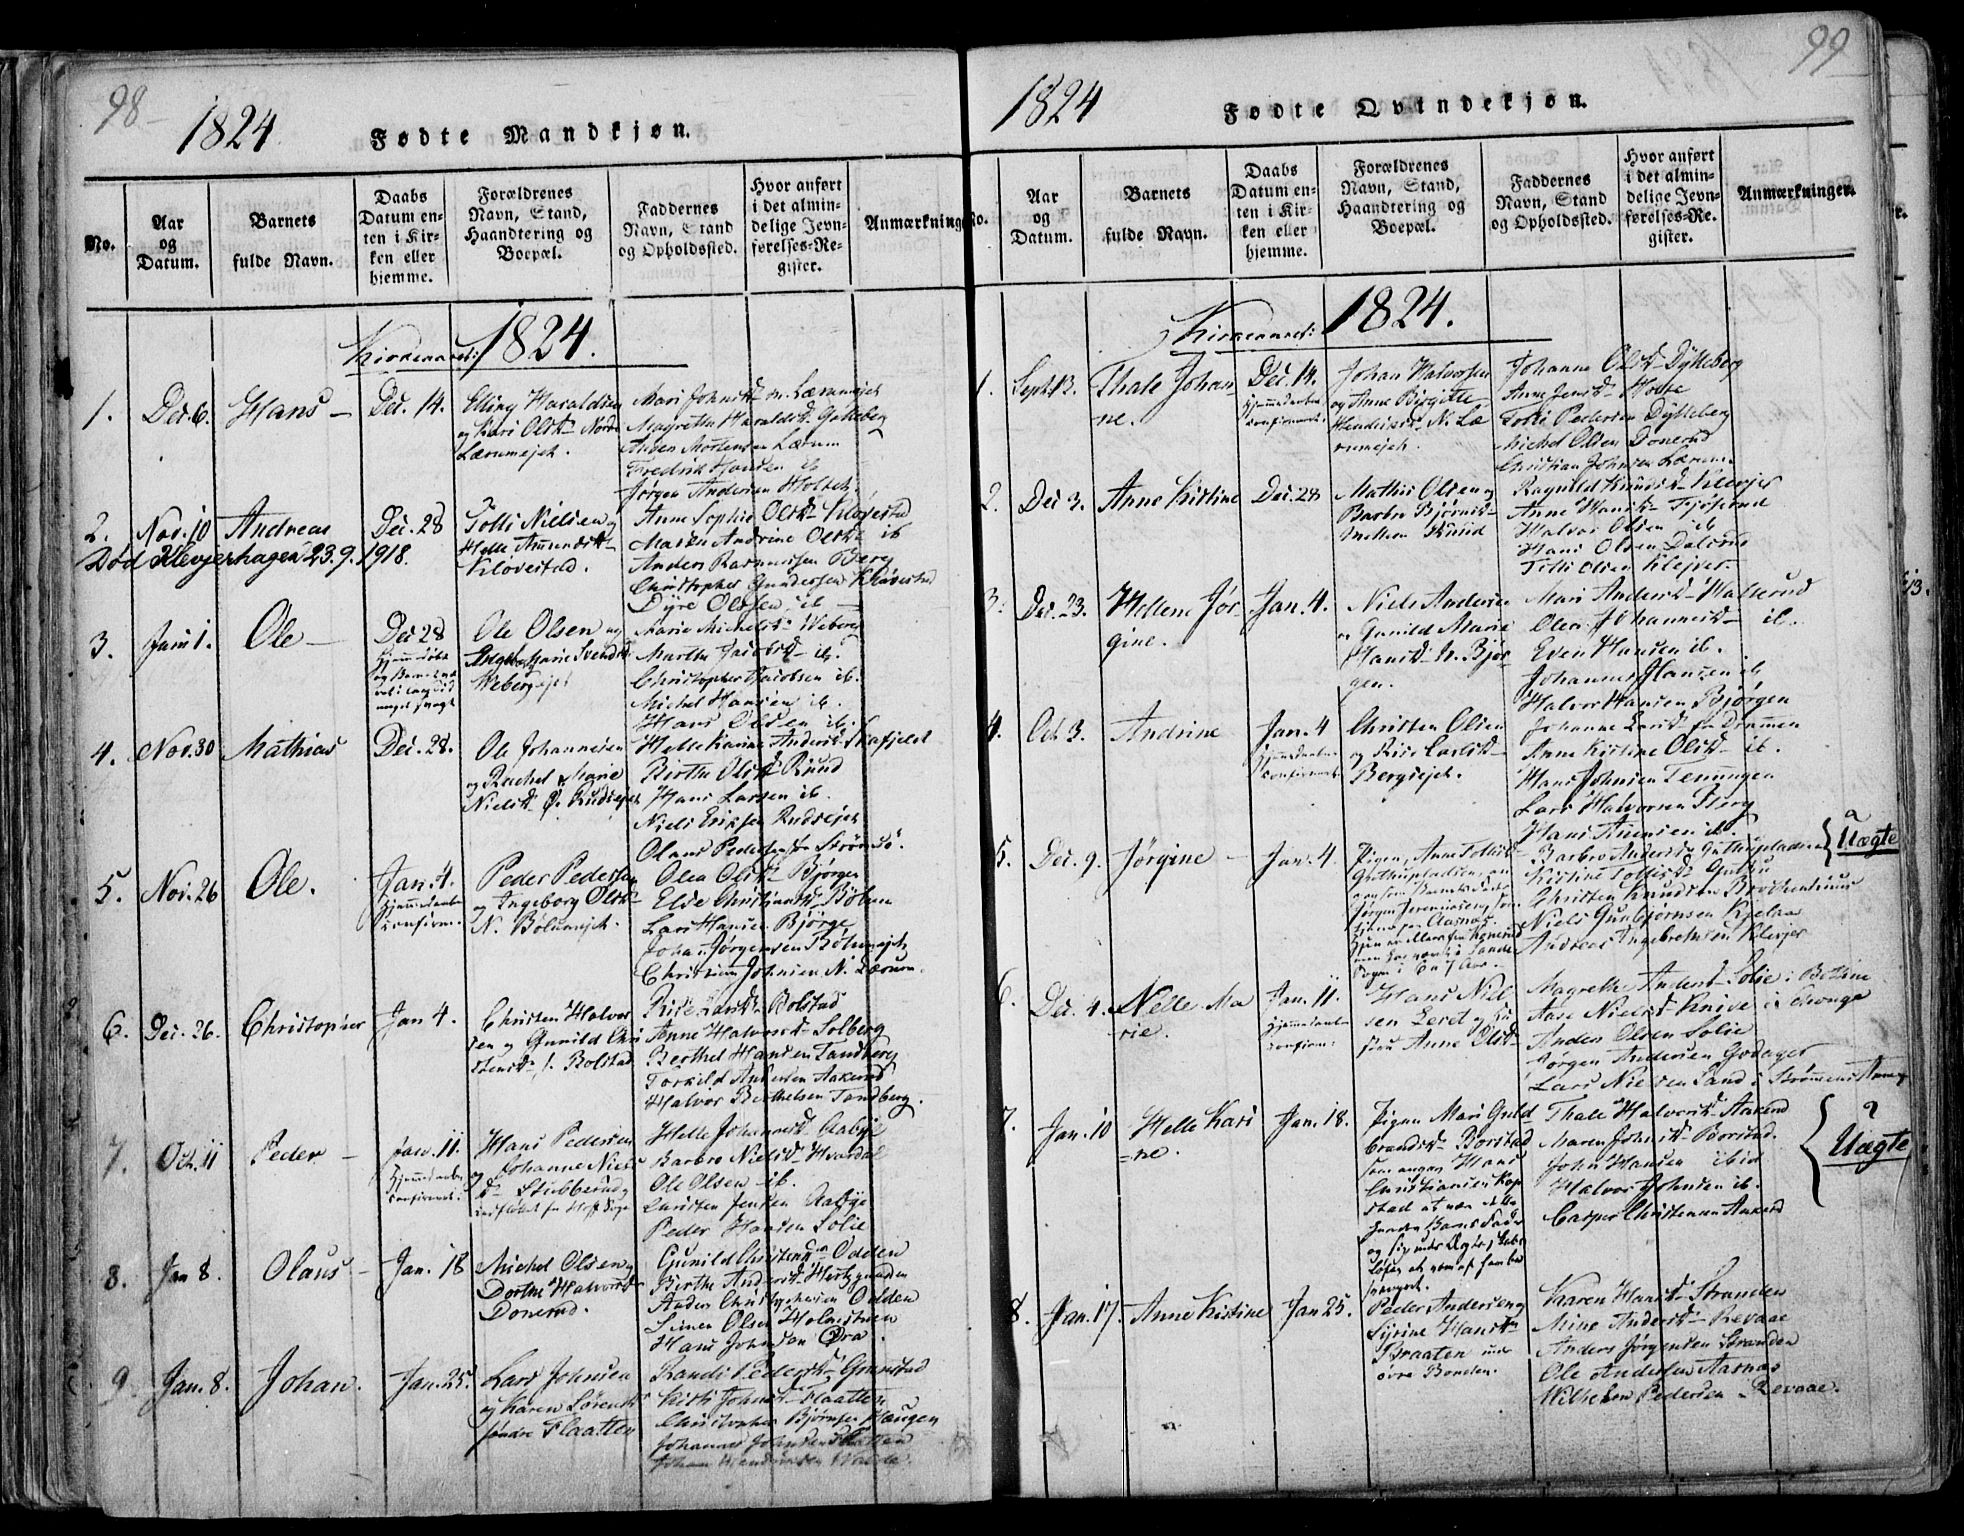 98
1824
Fødte Mandkjøn.
No.
Aar
og
Datum.
Barnets
fulde Navn.
Daabs
Datum en-
ten i Kir-
ken eller
hjemme.
Forældrenes
Navn, Stand,
Haandtering og
Boepæl.
Faddernes
Navn, Stand
og Opholdssted.
Hvor anført
i det almin-
delige Jevn-
førelses-Re-
gister.
Anmærkninge
Kirkeaaret: 1824.
1. Dec. 6. Hans – Dec. 14.
Elling Haraldsen
og Kari Olsd. Nordr
Lærumejet.
Mari Johnsd. n. Lærumejet
Magrethe Haraldsd. Gulleberg
Anders Mortensen Lærum
Fredrik Hansen ib
Jørgen Andersen Holtet.
2. Nov. 10 Andreas Dec. 28
Død Klevjerhagen 23.9.1918.
Tolli Nielsen og
Helle Amundsd.
Kløvestad.
Anne Sophie Olsd. Kløvestad
Maren Andrine Olsd. ib
Anders Rasmussen Berg
Christopher Gundersen Kløvestad
Dyre Olssen, ib
3. Jan. 1. Ole – Dec 28
Hjemmedøbt
Ole Olsen og
Marie Svendsd.
Webergejet
Marie Michelsd. Weberg
Marthe Jacobsd. ib.
Christopher Jacobsen ib.
Michel Hansen ib.
Hans Olsen ib.
4. Nov. 30 Mathias Dec. 28.
Ole Johannesen
og Rachel Marie
Nielsd. Ø. Rudsejet
Helle Karine Andersd. Skafjeld
Birthe Olsd. Ruud
Hans Larsen ib.
Niels Eriksen Rudsejet
Olaus Pedersen fra Strømsø.
5. Nov. 26 Ole. Jan. 4.
Hjemmedaaben
confirm.
Peder Pedersen
og Ingeborg Olsd.
N. Bølumejet.
Olea Olsd. Bjørgen
Else Christiansd. Bølum
Lars Hansen Bjørge
Johan Jørgensen Bølumejet
Christian Johnsen N. Lærum.
6. Dec. 26. Christopher Jan 4.
Christen Halvor
sen og Gunild Chri
stensd. Bolstad
Risè Larsd. Bolstad
Anne Halvorsd. Solberg
Berthel Hansen Tandberg
Torkild Andersen Aakerud
Halvor Berthelsen Tandberg.
7. Oct. 11 Peder – Jan. 11.
Hjemmedaaben
confirmert:
Hans Pedersen
og Johanne Niels
d. Stubberud
Helle Johannesd. Aabye
Barbro Nielsd. Hvardal
Ole Olsen ib.
Christen Jensen Aabye
Peder Hansen Solie
8. Jan 8. Olaus – Jan. 18
Michel Olsen og
Dorthe Halvorsd.
Donerud.
Gunild Christensd Odden
Birthe Andersd. Hertzgaarden
Anders Christophersen Odden
Simen Olsen Holmstuen
Hans Johnsen Dra.
9. Jan. 8. Johan. Jan. 25.
Lars Johnsen
og Karen Sørensd
søndre Flaatten
Randi Pedersd. Grønstad
Kisti Johnsd. Flaatten
Christopher Bjørnsen Haugen
Johannes Johnsen Flatten
99
1824
Fødte Qvindekjøn.
No.
Aar
og
Datum.
Barnets
fulde Navn.
Daabs
Datum en-
ten i Kir-
ken eller
hjemme.
Forældrenes
Navn, Stand,
Haandtering og
Boepæl.
Faddernes
Navn, Stand
og Opholdssted.
Hvor anført
i det almin-
delige Jevn-
førelses-Re-
gister.
Anmærkninger.
Kirkeaaret: 1824.
1. Sept. 12. Thale Johan-
ne.
Dec. 14.
Hjemmedaaben
confirmeret.
Johan Halvorsen
og Anne Birgitte
Henrichsd. N. Læ
rumejet.
Johanne Olsd. Dylleberg
Anne Jensd. Holte
Tolli Pedersen Dylleberg
Michel Olsen Donerud
Christian Johnsen Lærum.
2. Dec 3. Anne Kistine Dec. 28
Mathis Olsen og
Barbro Bjørnsd.
mellem Ruud
Ragnild Knudsd. Klevjer
Anne Hansd. Fjøserud
Halvor Olsen ib
Hans Olsen Dalerud
Tolli Olsen Klejver.
3. Dec. 23. Hellene Jør-
gine.
Jan. 4.
Niels Andersen
og Gunild Marie
Hansd. N. Bjør
gen.
Mari Andersd. Hallerud
Olea Johannesd. ib.
Even Hansen ib.
Johannes Hansen ib
Halvor Hansen Bjørgen
4. Oct 3. Andrine Jan. 4
Hjemmedaaben
confirmeret
Christen Olsen
og Risè Carlsd.
Bergsejet.
Johanne Larsd. fra Drammen
Anne Kistine Olsd. ib.
Hans Johnsen Temmingen
Lars Halvorsen Berg
Hans Amundsen ib.
5. Dec. 9. Jørgine – Jan. 4.
Pigen Anne Tollefsd.
Barbro Andersd. Guthupladsen
Kistine Tollisd. Guttu
Christen Knudsen Brockentuun
Niels Gunbjørnsen Kjelaas
Andreas Ingebretsen Klevjer
Uægte
6. Dec. 4. Nelle Ma
rie.
Jan. 11.
Hjemmedaaben
confirm:
Hans Niel
sen Leret og Hu
stru Anne Olsd.
Magrethe Andersd. Solie
Aase Nielsd. Knive
Anders Olsen Solie
Jørgen Andersen Godager
Lars Nielsen Sand i Strømmens Annex
7. Jan. 10 Helle Kari
ne.
Jan. 18.
Pigen Mari Guld
brandsd. Borstad
som angav Hans
Christiansen Kop
stad at være dette
hendes Barns Fader
Thale Halvorsd. Aakerud
Maren Johnsd. Borstad.
John Hansen ibid
Halvor Johnsen ib.
Casper Christensen Aakerud
Uægte
8. Jan. 17. Anne Kistine Jan 25.
Peder Andersen og
Syrine Hansd.
Braaten under
øvre Bonden.
Karen Hansd. Stranden
Mine Andersd. Revaae
Anders Jørgensen Stranden
Ole Andersen Aasnæs
Wilhelm Pedersen Revaae.